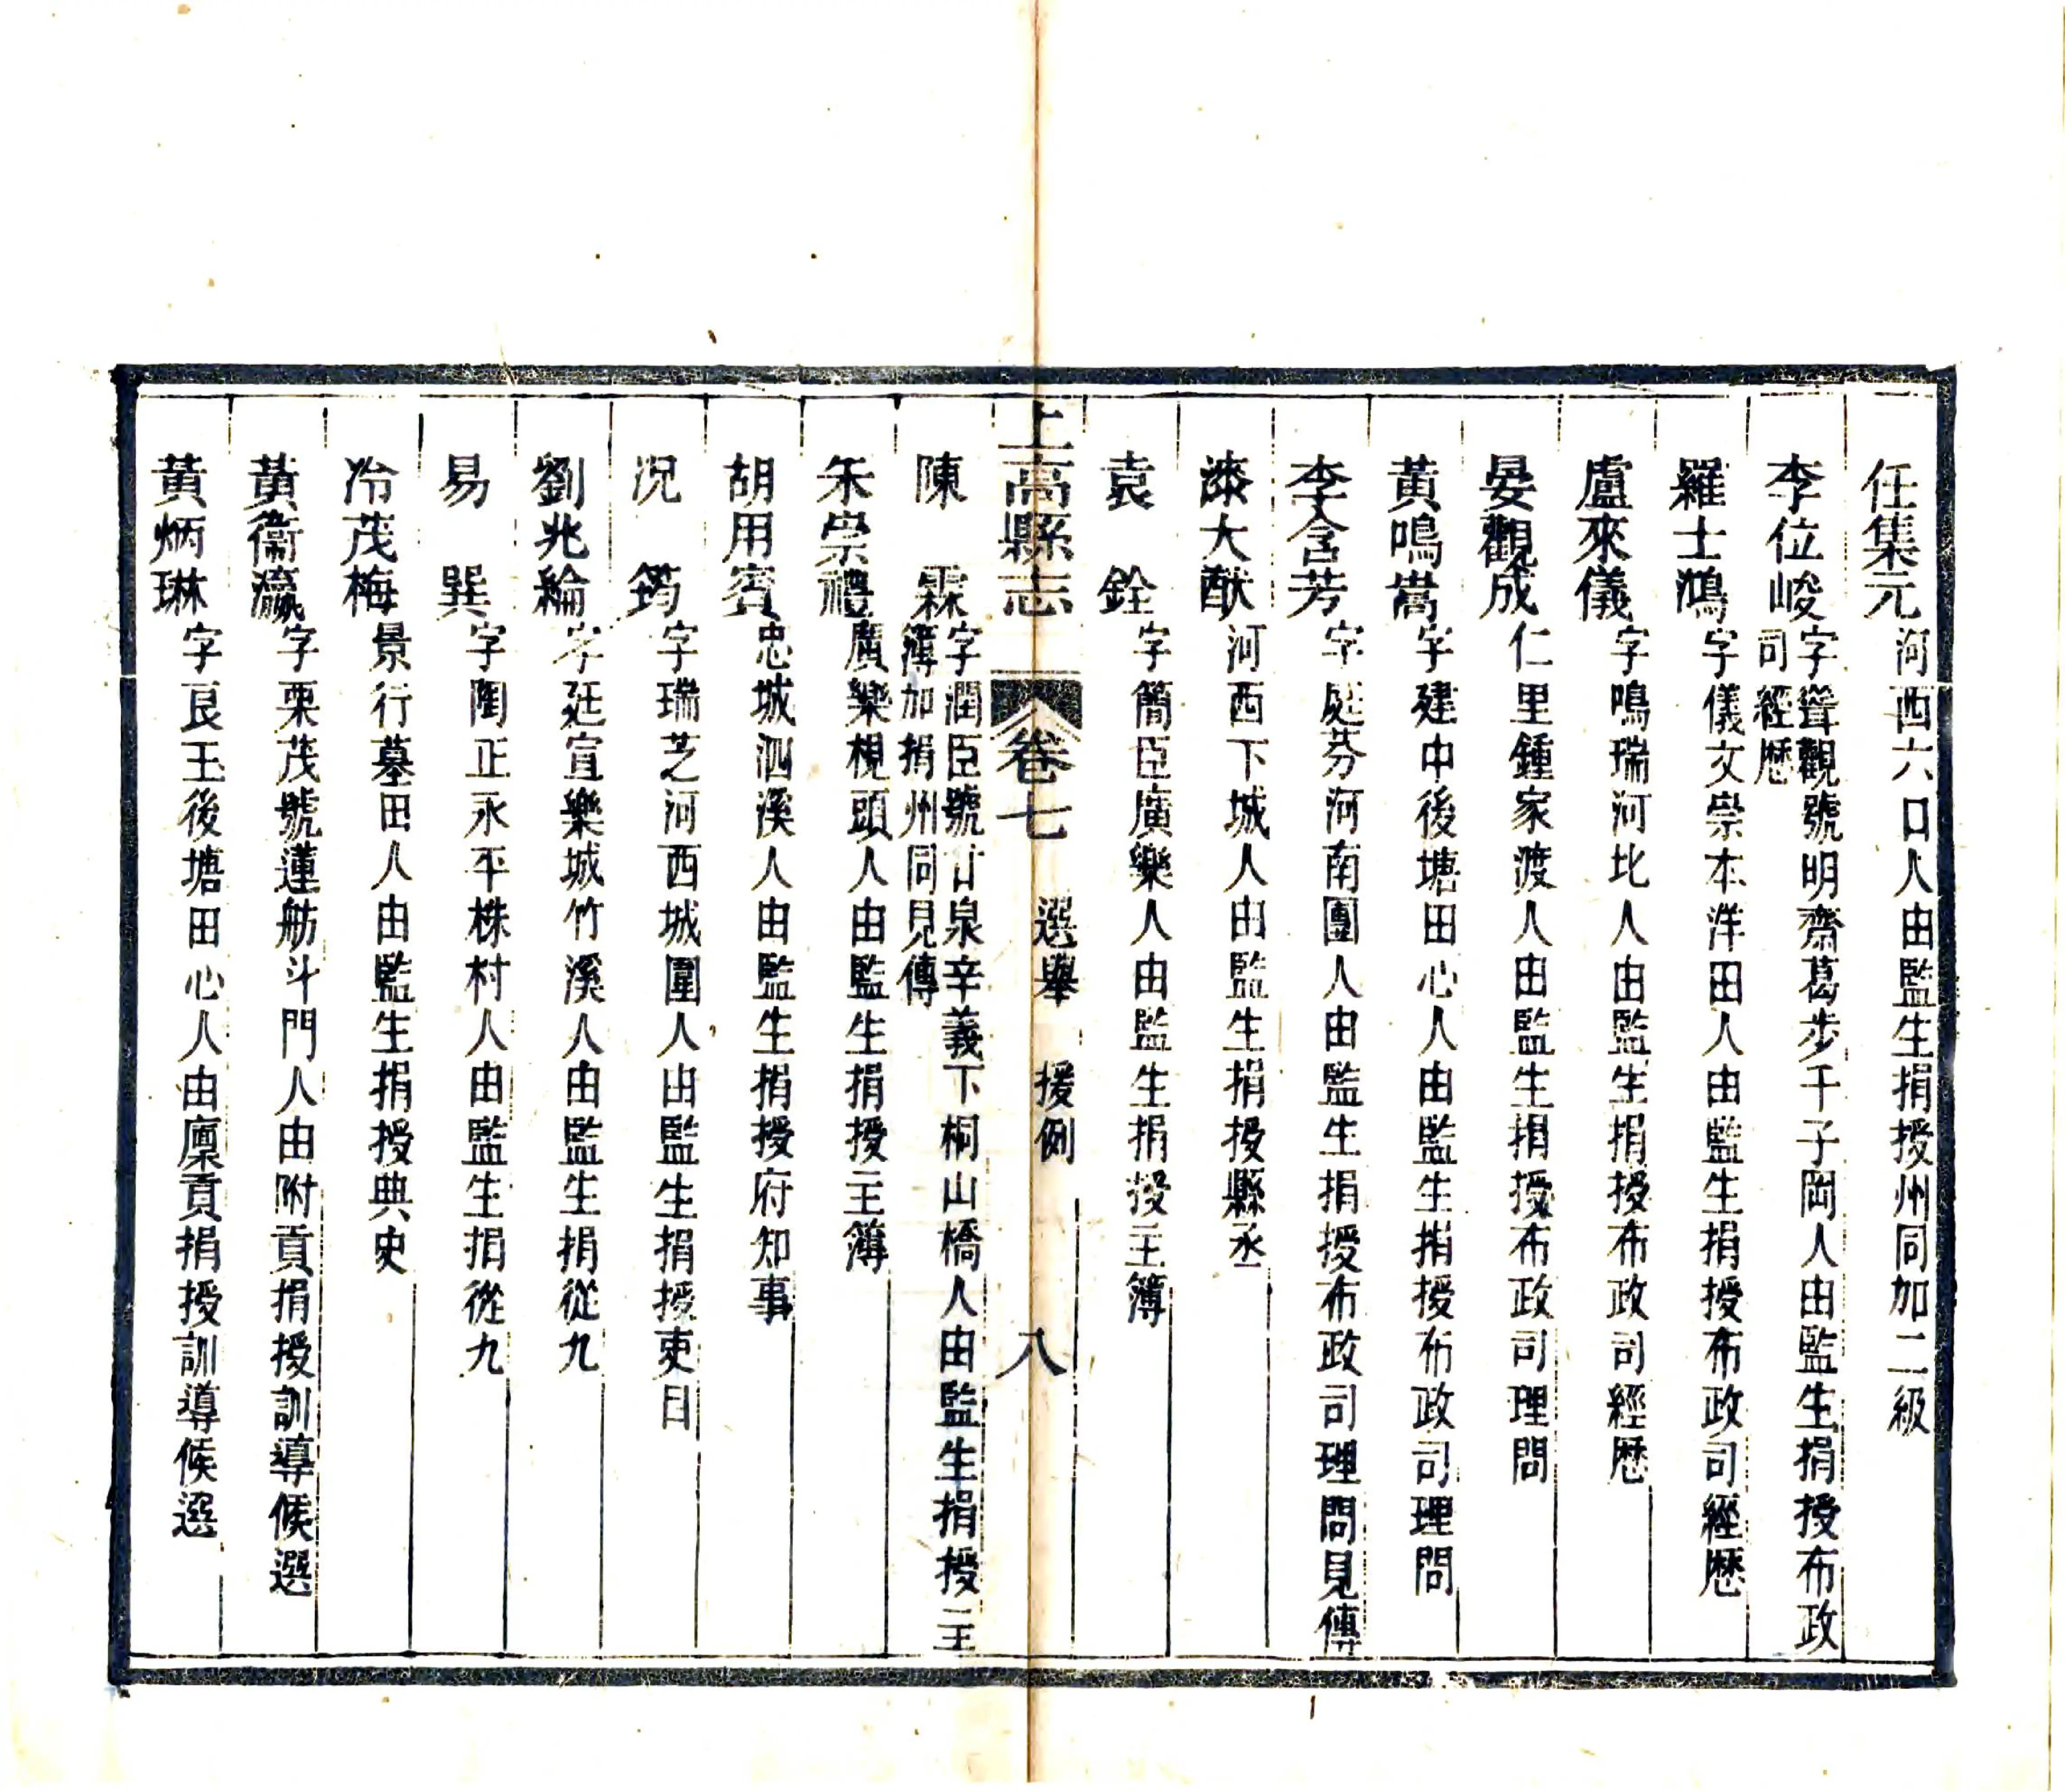 任集元 河西六口人由監生捐授州同加二級
李位峻 字聳觀號明齋葛步千子岡人由監生捐授布政
司經歷
羅士鴻 字儀文崇本洋田人由監生捐授布政司經歷
盧來儀 字鳴瑞河北人由監生捐授布政司經歷
晏觀成 仁里鍾家渡人由監生捐授布政司理問
黃鳴嵩 字建中後塘田心人由監生捐授布政司理問
李含芳 字庭芬河南團人由監生捐授布政司理問見傳
漆大猷 河西下城人由監生捐授縣丞
袁銓 字簡臣廣樂人由監生捐授主簿
上高縣志 卷七 選舉 援例 八
陳霖 字潤臣號甘泉辛義下桐山橋人由監生捐授主
簿加捐州同見傳
朱崇禮 廣樂梘頭人由監生捐授主簿
胡用賓 忠城泗溪人由監生捐授府知事
况筠 字瑞芝河西城圍人由監生捐授吏目
劉兆綸 字廷宣樂城竹溪人由監生捐從九
易巽 字陶正永平株村人由監生捐從九
冷茂梅 景行墓田人由監生捐授典史
黃衞瀛 字栗茂號蓮舫斗門人由附貢捐授訓導候選
黃炳琳 字良玉後塘田心人由廩貢捐授訓導候選